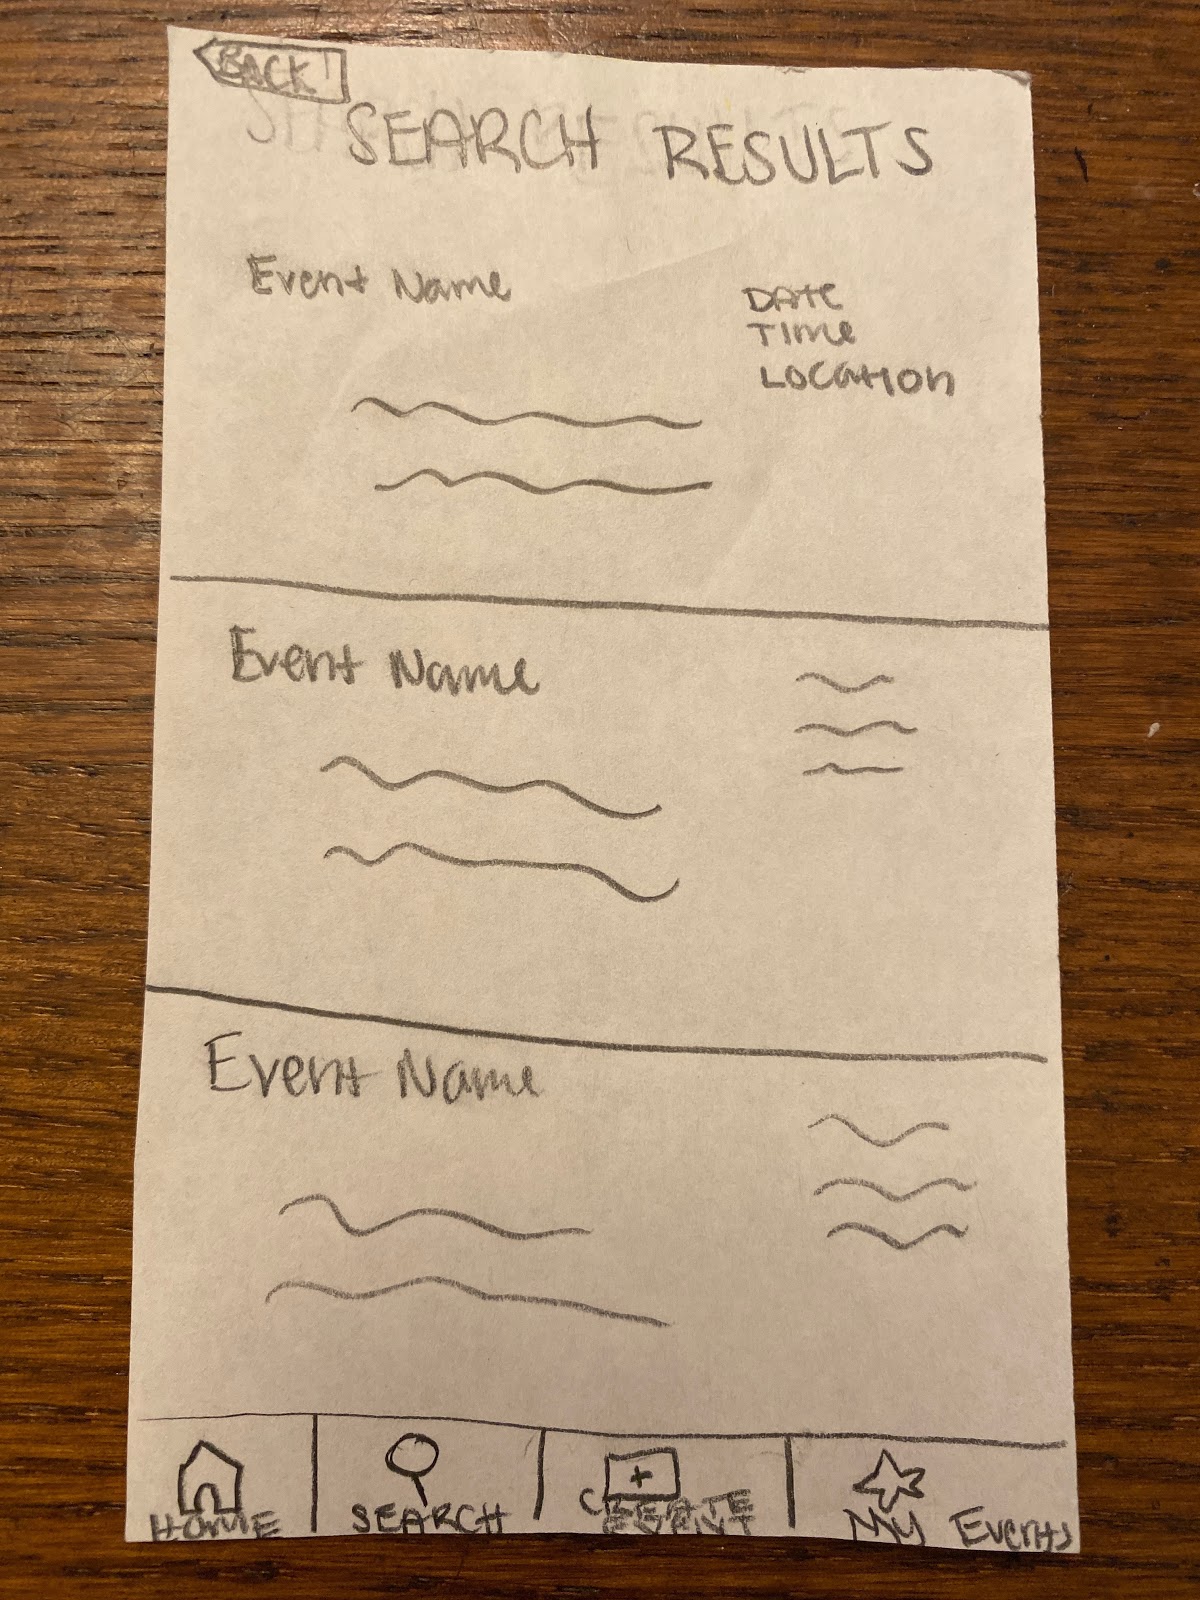 BACK
SEARCH RESULTS
Event Name
DATE
TIME
LOCATION
Event Name
Event Name
HOME
SEARCH
CREATE
EVENT
My Events